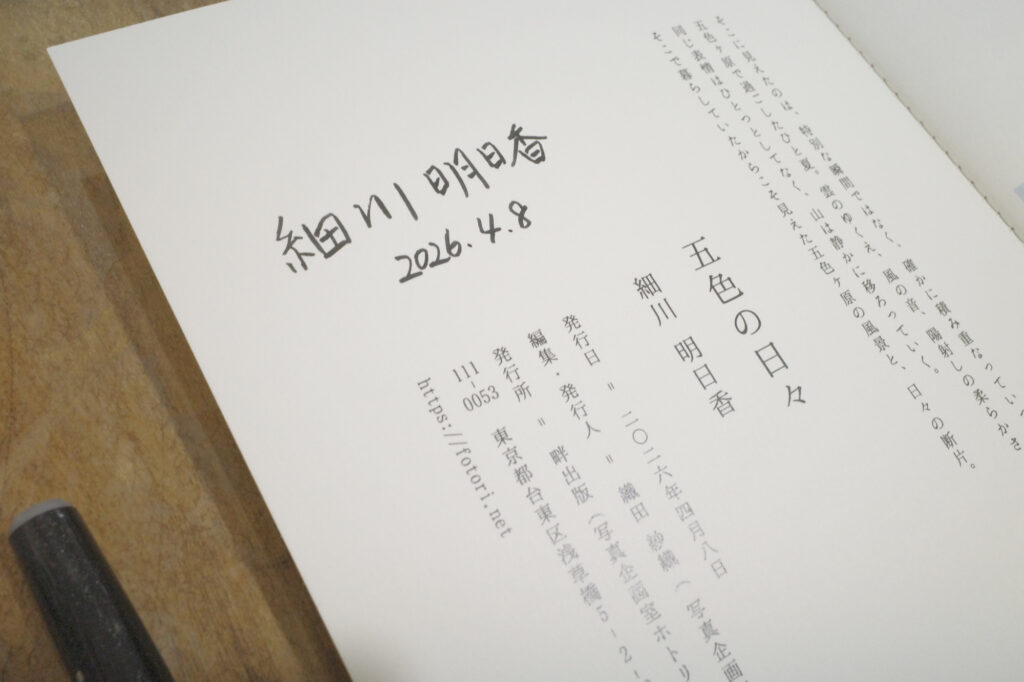 そこに見えたのは、特別な瞬間ではなく、確かに積み重なってい
五色ヶ原で過ごしたひと夏。雲のゆくえ、風の音、陽射しの柔らかさ
同じ表情はひとつとしてなく、山は静かに移ろっていく。
そこで暮らしていたからこそ見えた五色ヶ原の風景と、日々の断片。
五色の日々
細川 明日香
発行日 = 二〇二六年四月八日
編集・発行人 = 織田 紗織（写真企画
発行所 = 畔出版（写真企画室ホトリ
111-0053 東京都台東区浅草橋5-2-
https://fotori.net
細川明日香
2026.4.8